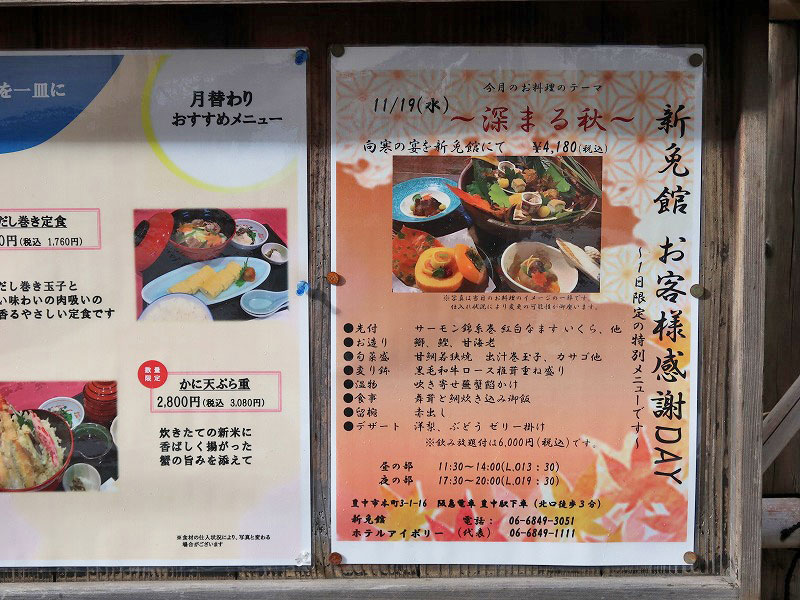 を一皿に
月替わり
おすすめメニュー
だし巻き定食
0円(税込 1,760円)
だし巻き玉子と
い味わいの肉吸いの
香るやさしい定食です
数量
限定
かに天ぷら重
2,800円(税込 3,080円)
炊きたての新米に
香ばしく揚がった
蟹の旨みを添えて
※食材の仕入状況により、写真と変わる
場合がございます
今月のお料理のテーマ
11/19(水)
～深まる秋～
向寒の宴を新免館にて ¥4,180(税込)
※写真は当日のお料理のイメージの一部です。
仕入れ状況により変更の可能性が御座います。
●先付 サーモン錦糸巻 紅白なます いくら、他
●お造り 鰤、鰹、甘海老
●旬菜盛 甘鯛若狭焼 出汁巻玉子、カサゴ他
●炙り鉢 黒毛和牛ロース椎茸重ね盛り
●温物 吹き寄せ蕪蟹餡かけ
●食事 舞茸と鯛炊き込み御飯
●留椀 赤出し
●デザート 洋梨、ぶどう ゼリー掛け
※飲み放題付は6,000円(税込)です。
昼の部 11:30～14:00(L.O13：30)
夜の部 17:30～20:00(L.O19：30)
豊中市本町3-1-16 阪急電車 豊中駅下車（北口徒歩３分）
新免館 電話： 06-6849-3051
ホテルアイボリー （代表） 06-6849-1111
新免館 お客様感謝DAY
～1日限定の特別メニューです～